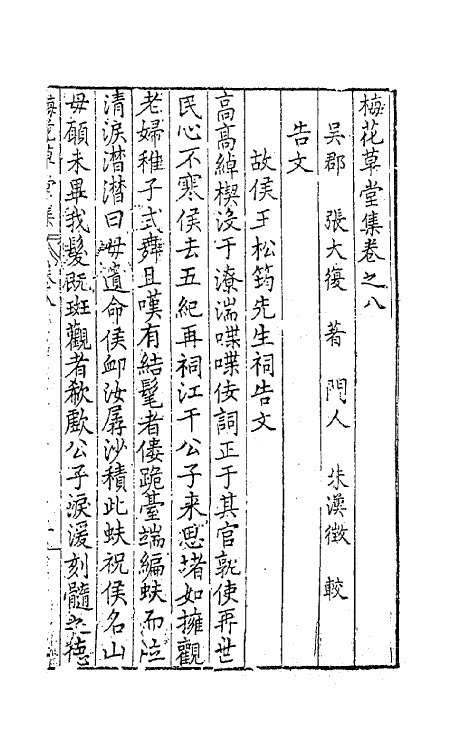 梅花草堂集卷之八
吳郡 張大復 著 門人 朱漢徵 較
告文
故侯王松筠先生祠告文
高高綽楔沒于潦湍喋喋佞詞正于其官孰使再世
民心不寒侯去五紀再祠江干公子来思堵如擁觀
老婦稚子式舞且嘆有結髦者僂跪臺端編蚨而泣
清淚潸潸曰母遺命侯卹汝孱沙積此蚨祝侯名山
母願未畢我髮既斑觀者欷歔公子淚湲刻髓之德
梅花草堂集 卷八